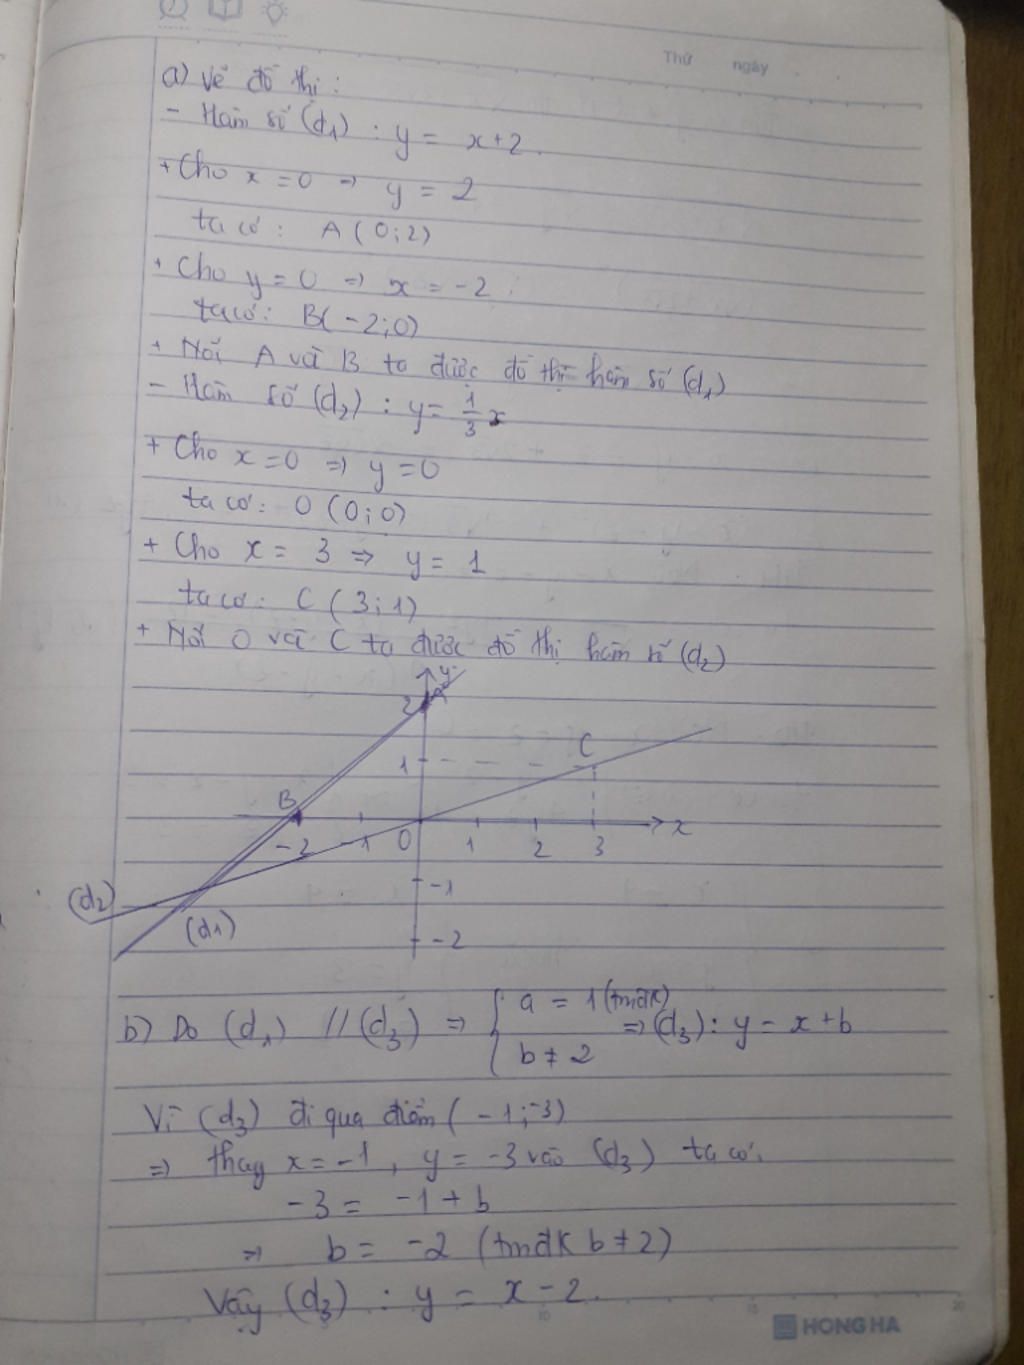 Thứ ngày
a) Vẽ đồ thị :
- Hàm số (d1) : y = x+2.
+ Cho x = 0 => y = 2
ta có : A ( 0 ; 2 )
+ Cho y = 0 => x = -2
ta có : B( -2 ; 0)
+ Nối A và B ta được đồ thị hàm số (d1)
- Hàm số (d2) : y = 1/3 x
+ Cho x = 0 => y = 0
ta có : O ( 0 ; 0)
+ Cho x = 3 => y = 1
ta có : C ( 3 ; 1)
+ Nối O và C ta được đồ thị hàm số (d2)
y
2 A
1 C
B
-2 -1 0 1 2 3 x
-1
(d2)
(d1)
-2
b) Do (d1) // (d3) => { a = 1 (tmđk)
b ≠ 2 => (d3) : y = x + b
Vì (d3) đi qua điểm ( -1 ; -3)
=> thay x = -1 , y = -3 vào (d3) ta có.
-3 = -1 + b
=> b = -2 (tmđk b ≠ 2)
Vậy (d3) : y = x - 2.
10 15 20
HONG HA